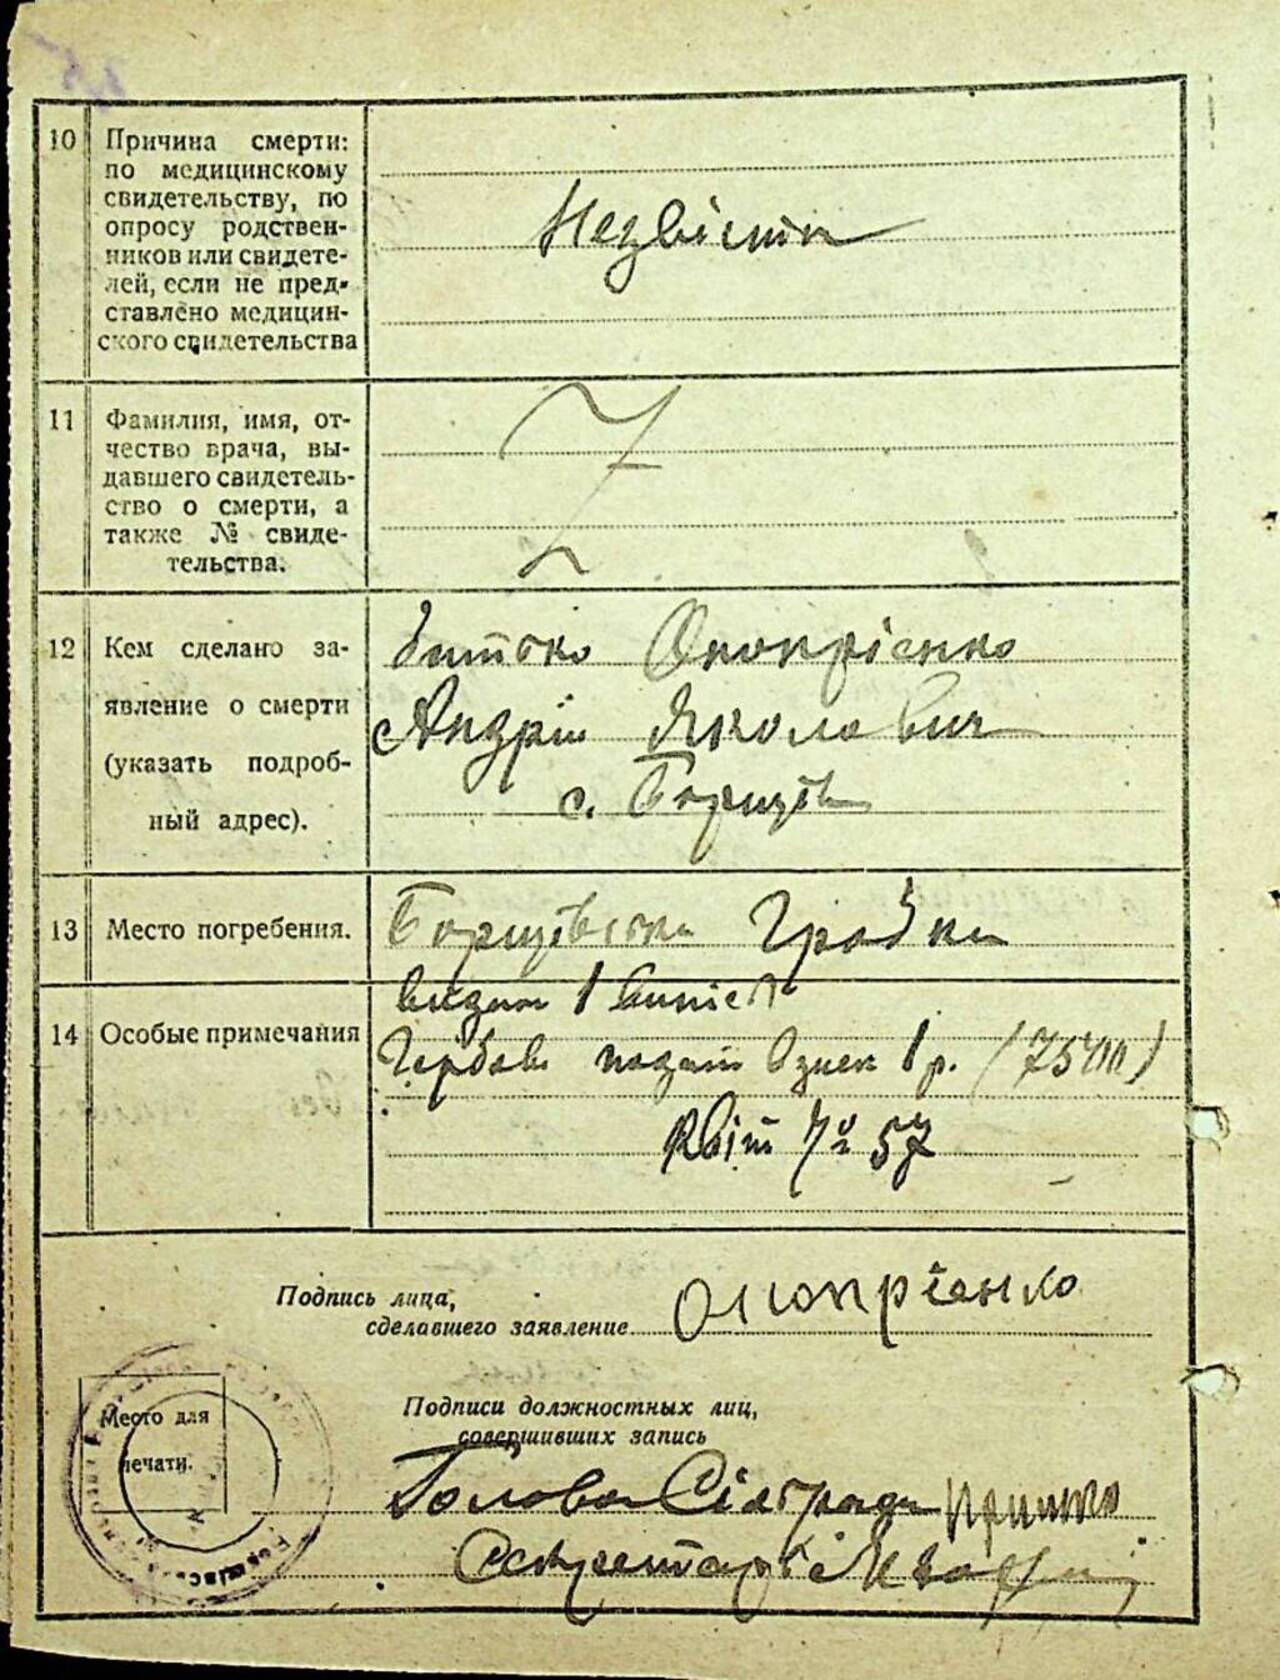 10 Причина смерти:
по медицинскому
свидетельству, по
опросу родствен-
ников или свидете-
лей, если не пред-
ставлено медицин-
ского свидетельства
Незвістн
11 Фамилия, имя, от-
чество врача, вы-
давшего свидетель-
ство о смерти, а
также № свиде-
тельства.
Z
12 Кем сделано за-
явление о смерти
(указать подроб-
ный адрес).
Батько Онопрієнко
Андрій Яколович
с. Борщів
13 Место погребения.
Борщівськи Гробки
14 Особые примечания
видан 1 випис
Гербов 1 р. (75)
Квіт № 57
Подпись лица,
сделавшего заявление
Онопрієнко
Место для
печати.
Подписи должностных лиц,
совершивших запись
Голова Сільради
Секретарь